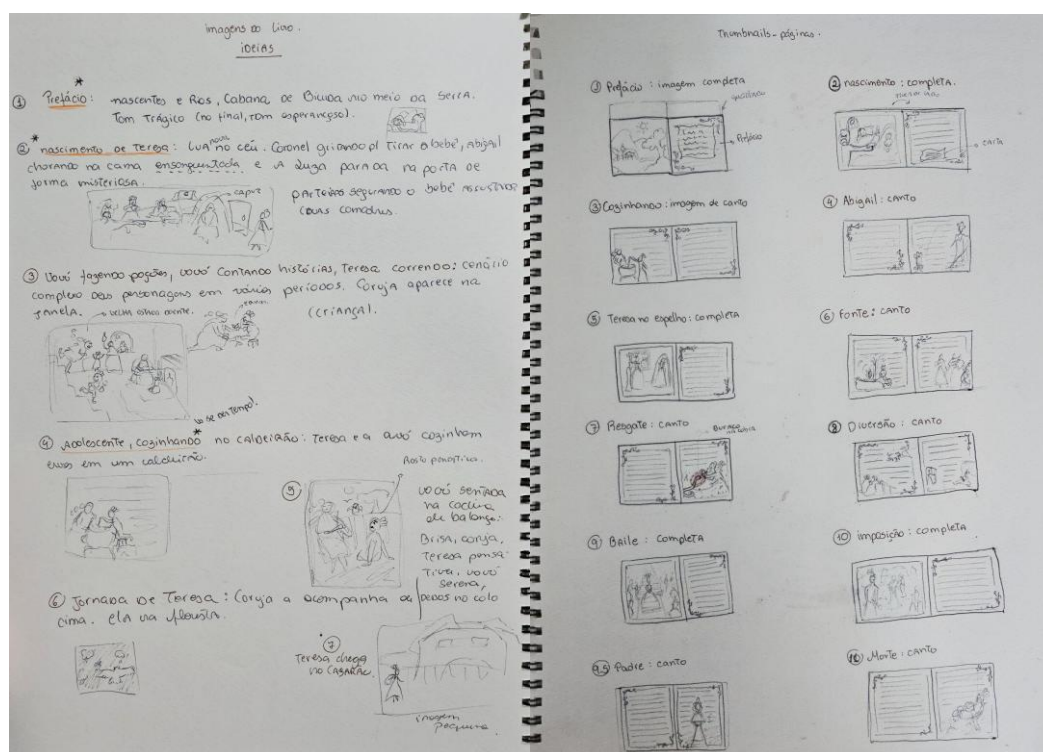 imagens do livro.
ideias
① Prefácio: nascentes e Rios, Cabana de Bicuda no meio da Serra.
Tom Trágico (no final, tom esperançoso).
② nascimento de Teresa: Lua nova no céu. Coronel gritando p/ Tirar o bebê, Abigail
chorando na cama ensanguentada e a parada na porta de
forma misteriosa.
capuz
parteiras segurando o bebê assustadas
③ Vovó fazendo poções, vovó contando histórias, Teresa correndo: cenário
complexo das personagens em vários períodos. Coruja aparece na
janela.
(criança).
se der tempo.
④ Adolescente, cozinhando no caldeirão: Teresa e a avó cozinham
ervas em um caldeirão.
⑤
vovó sentada
na cadeira
de balanço.
Brisa, coruja,
Teresa pensativa, vovó
serena,
penas no colo
⑥ Jornada de Teresa: Coruja a acompanha de
cima. ela na floresta.
⑦
Teresa chega
no casarão.
imagem
pequena.
Thumbnails - páginas.
① Prefácio: imagem completa
Prefácio
② nascimento: completa.
carta
③ Cozinhando: imagem de canto
④ Abigail: canto
⑤ Teresa no espelho: completa
⑥ Fonte: canto
⑦ Resgate: canto
⑧ Diversão: canto
⑨ Baile: completa
⑩ imposição: completa
9.5 Padre: canto
⑪ Morte: canto